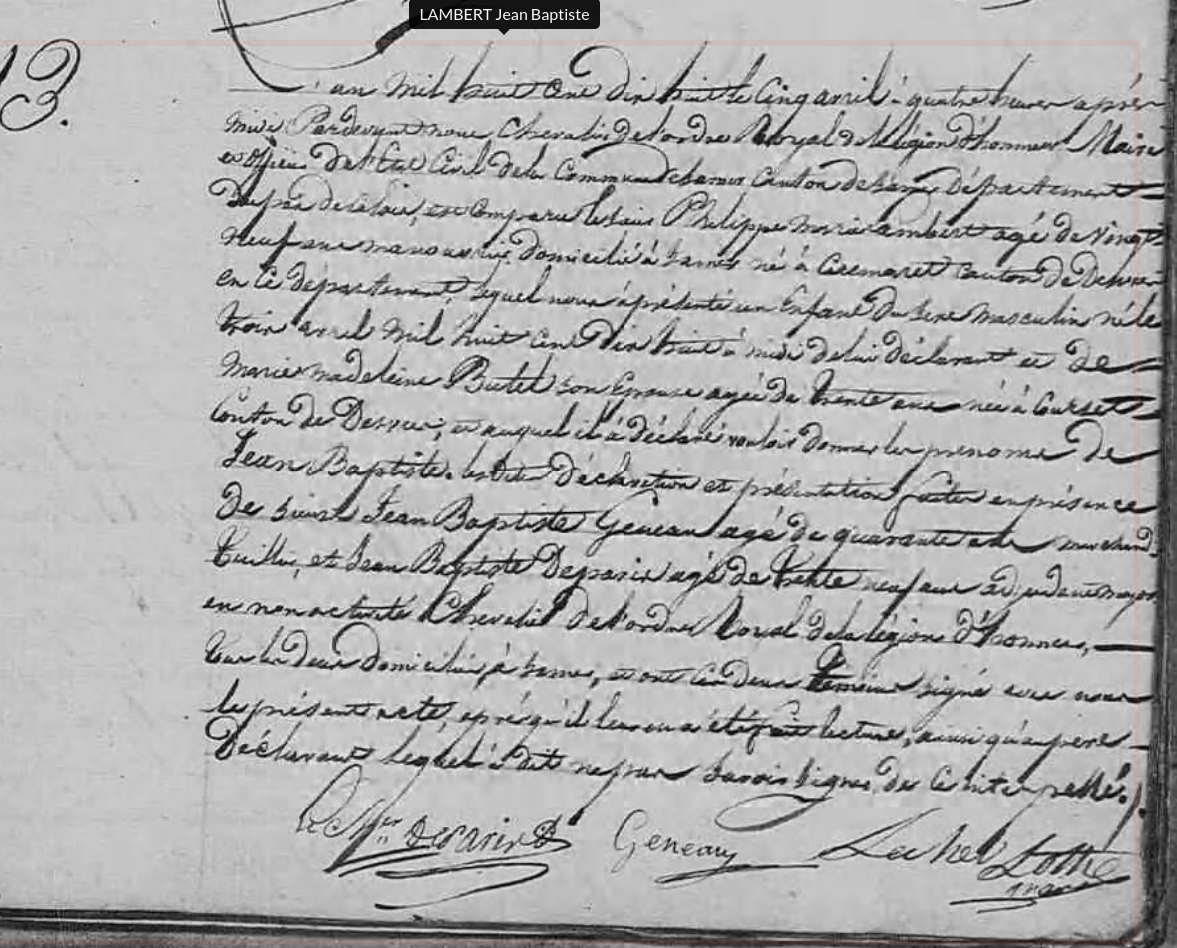 LAMBERT Jean Baptiste
13.
L'an mil huit cent dix huit le cinq avril à quatre heures après
midi Pardevant nous Chevalier de l'ordre Royal de la légion d'honneur Maire
et officier de l'état Civil de la Commune de Samer Canton de Samer Département
du pas de Calais, est comparu le sieur Philippe Marie Lambert agé de vingt
neuf ans manouvrier domicilié à Samer né à Cremarest canton de Desvres
en ce département, lequel nous à présenté un Enfant du sexe masculin né le
trois avril mil huit cent dix huit à midi de lui déclarant et de
Marie Madeleine Butel son Epouse agée de trente ans née à Courset
Canton de Desvres, et auquel il à déclaré vouloir donner les prenoms de
Jean Baptiste. les dites déclaration et présentation faites en présence
de sieurs Jean Baptiste Geneau agé de quarante ans marchand
, et Jean Baptiste Deparis agé de trente neuf ans adjudant major
en non activité Chevalier de l'ordre Royal de la légion d'honneur,
tous les deux domiciliés à Samer, et ont ces deux témoins signé avec nous
le présent acte, après qu'il leur en a été fait lecture, ainsi qu'au père
Déclarant lequel à dit ne pas savoir signer de ce interpellé./.
Le Chr Deparis Geneau